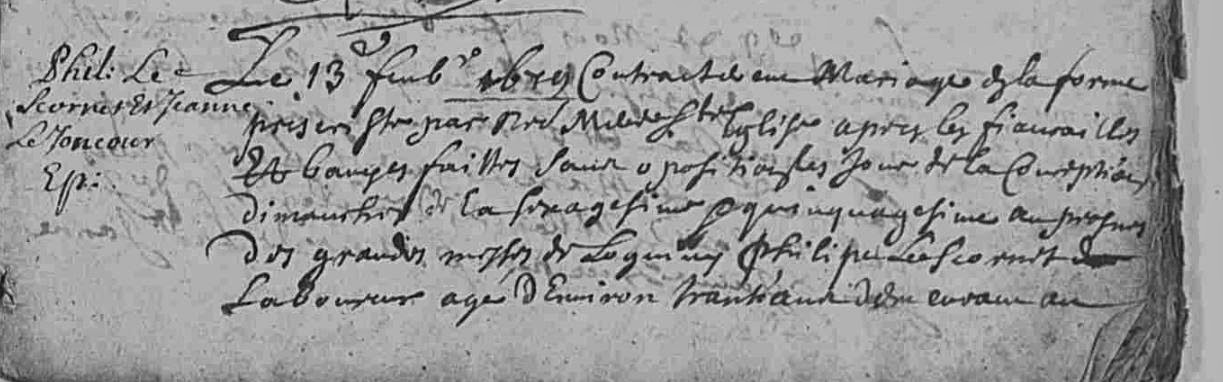 Phil: Le
Scornet Et Jeanne
Le Joncour
Esp:
Le 13e febr 1679 Contractերent Mariage en la forme
prescriste par nre Mere Ste Eglise apres les fiancailles
Et bannyes faittes sans opositions les Jour de la Conception
dimanches de la sexagesime & quinquagesime au prosnes
Des grandes messes de Loguivy Philipe Le Scornet
Laboureur agé D'Environ trante ans demeurant au